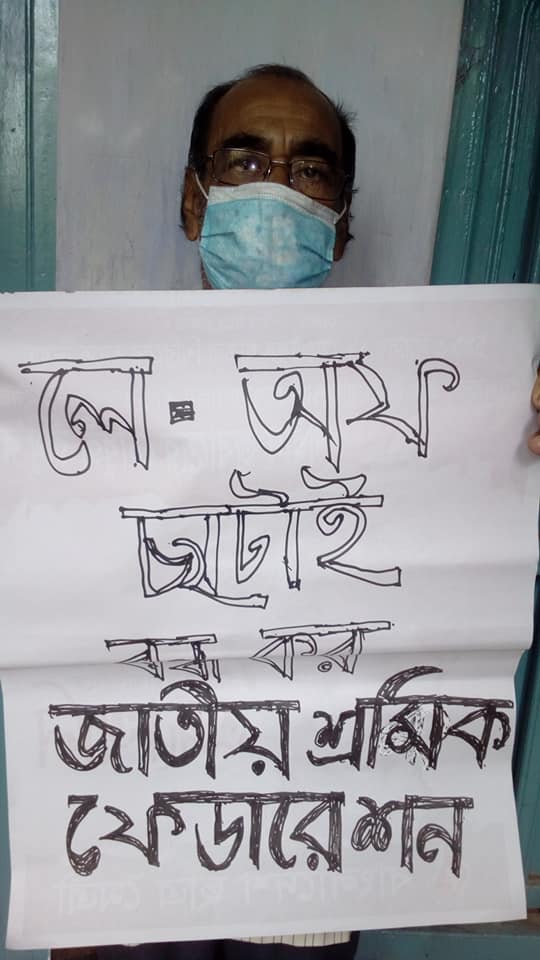 লে-অফ
ছাটাই
বন্ধ কর
জাতীয় শ্রমিক
ফেডারেশন